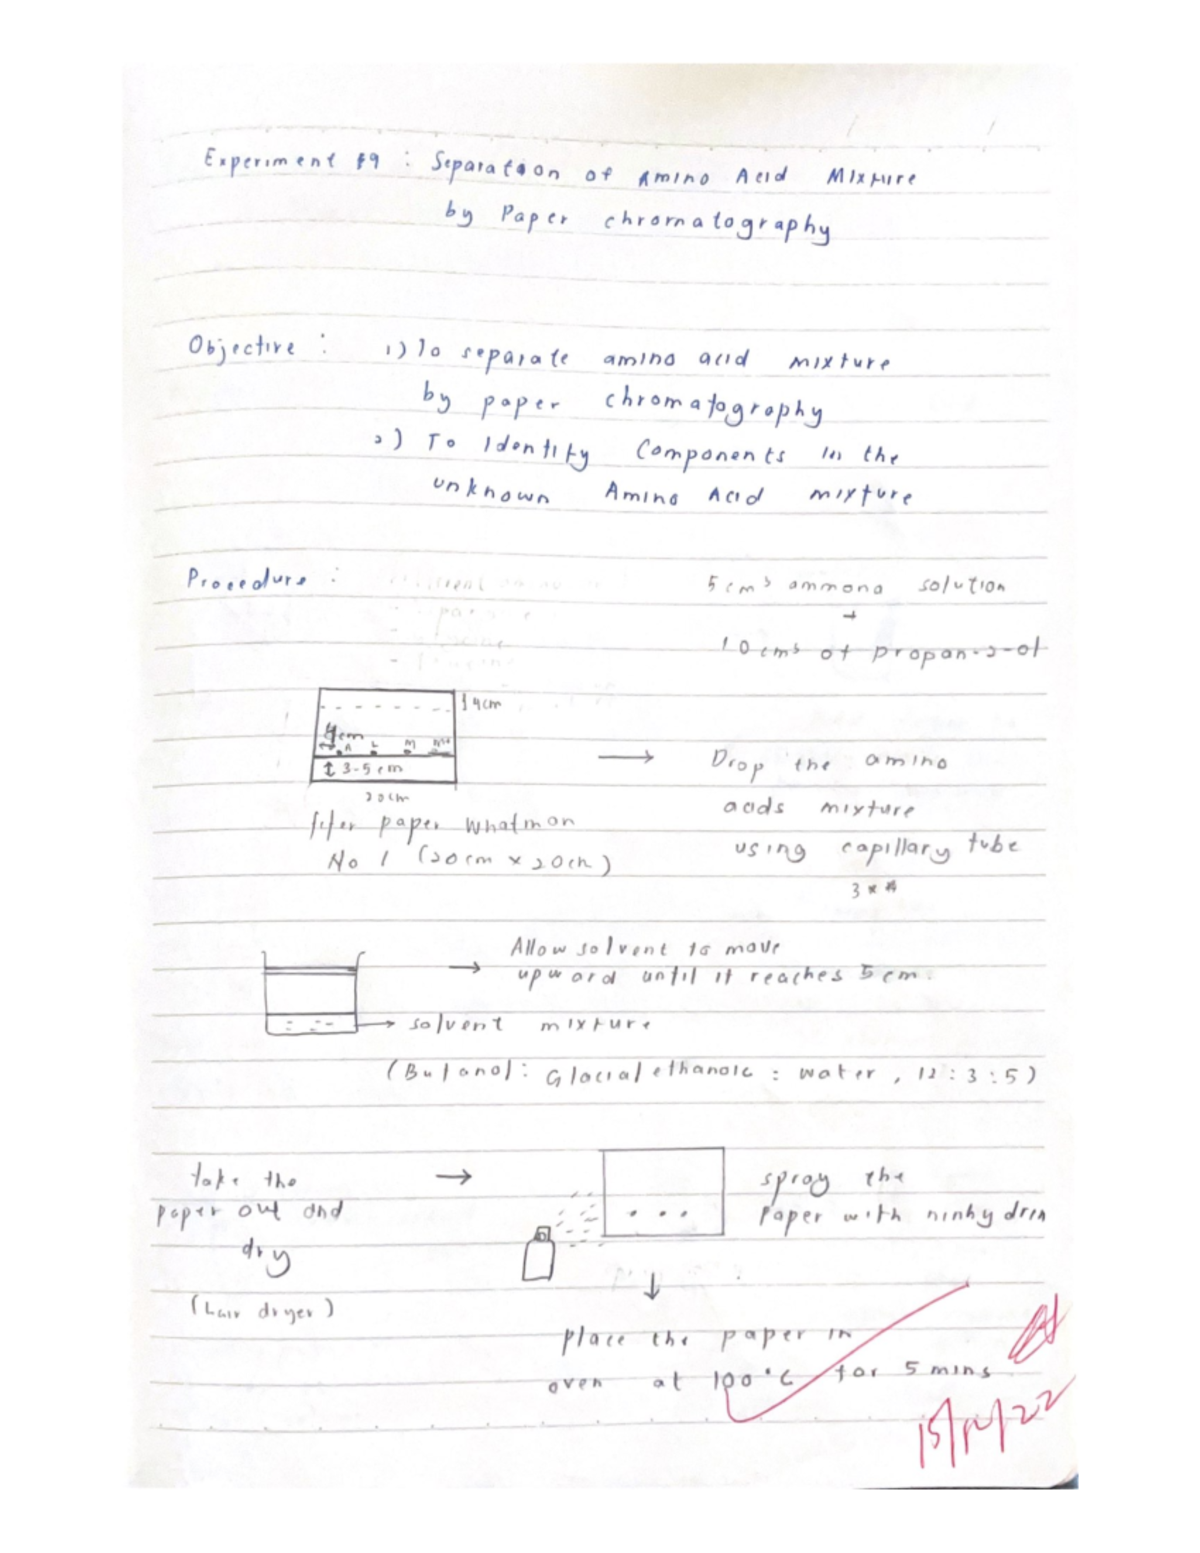 Experiment 9 : Separation of Amino Acid Mixture
by Paper chromatography
Objective : 1) To separate amino acid mixture
by paper chromatography
2) To Identity Components in the
unknown Amino Acid mixture
Procedure :
5 cm³ ammona solution
+
10 cm³ of propan-2-ol
4cm
4cm
A L M
3-5 cm
20cm
filter paper whatman
No 1 (20cm x 20cm)
→ Drop the amino
acids mixture
using capillary tube
3 x
→ Allow solvent to move
upward until it reaches 5 cm.
→ solvent mixture
(Butanol : Glacial ethanoic : water , 12 : 3 : 5)
take the →
paper out and
dry
(Hair dryer)
spray the
paper with ninhydrin
↓
place the paper in
oven at 100°C for 5 mins
15/12/22